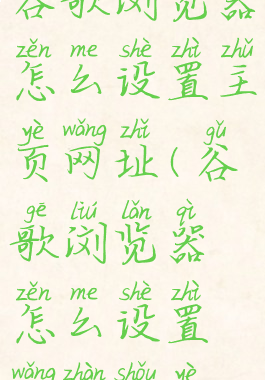 谷歌浏览器
zěn me shè zhì zhǔ
怎么设置主
yè wǎng zhǐ gǔ
页网址(谷
gē liú lǎn qì
歌浏览器
zěn me shè zhì
怎么设置
wǎng zhàn shǒu yè